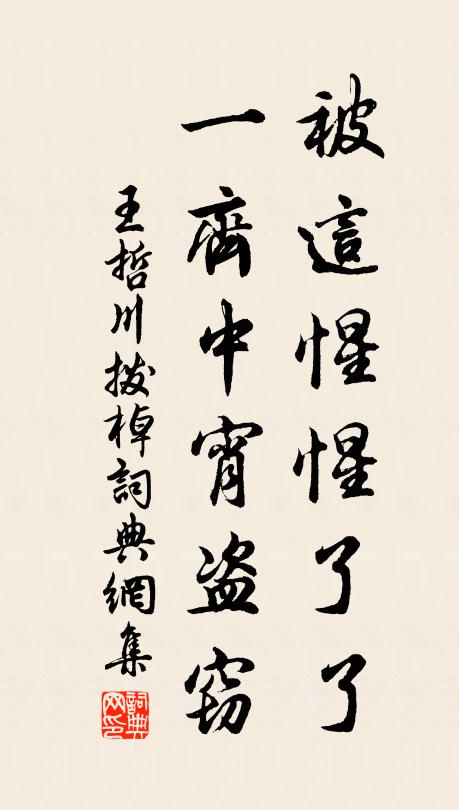 被這惺惺了了
一齊中宵盗窃
王哲川拨棹詞典網集
詞典网印